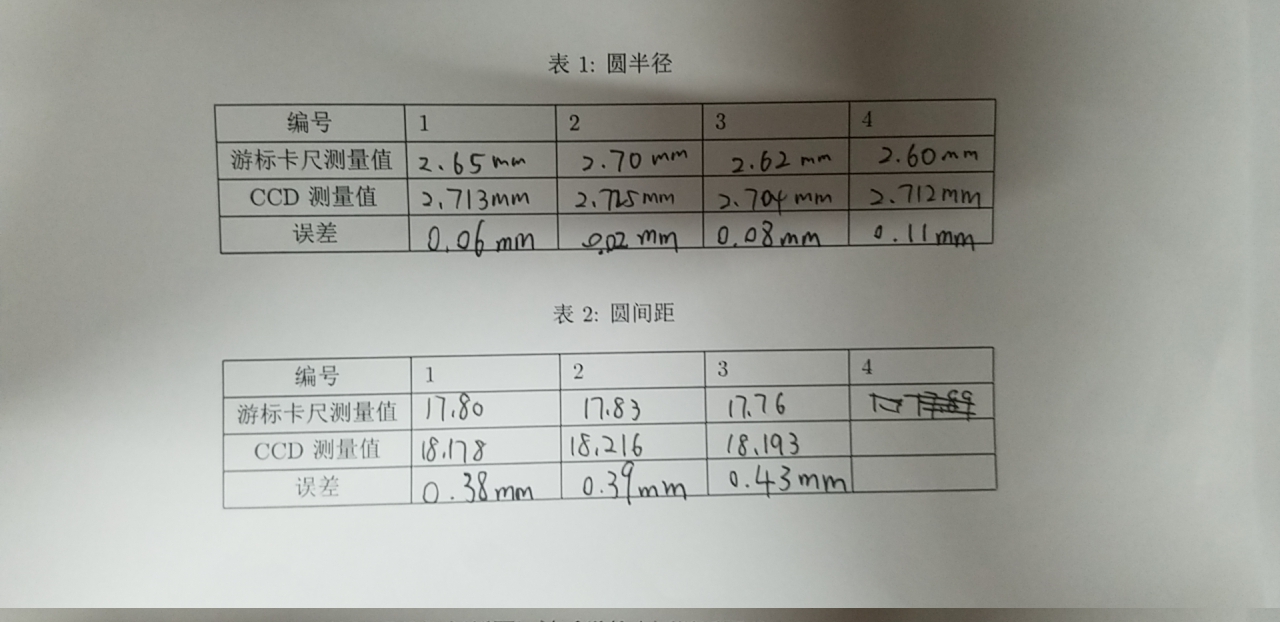 表 1: 圆半径
编号 1 2 3 4
游标卡尺测量值 2.65mm 2.70mm 2.62mm 2.60mm
CCD 测量值 2.713mm 2.725mm 2.704mm 2.712mm
误差 0.06mm 0.02mm 0.08mm 0.11mm
表 2: 圆间距
编号 1 2 3 4
游标卡尺测量值 17.80 17.83 17.76
CCD 测量值 18.178 18.216 18.193
误差 0.38mm 0.39mm 0.43mm